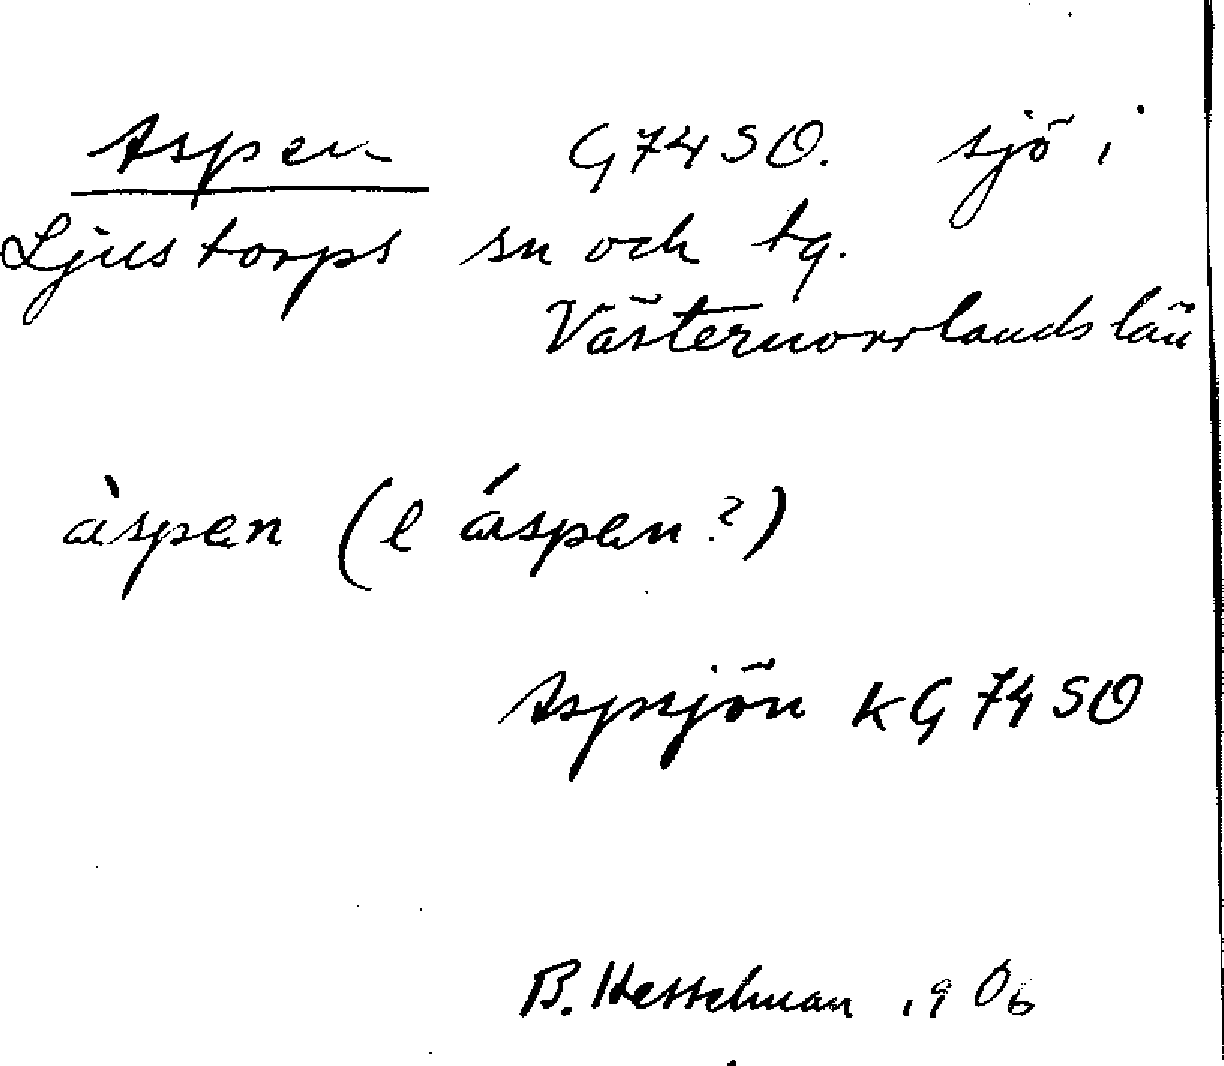 Aspen G74 SO. sjö i
Ljustorps sn och tg.
Västernorrlands län
àspen (l áspen?)
Aspsjön KG 74 SO
B. Hesselman 1906